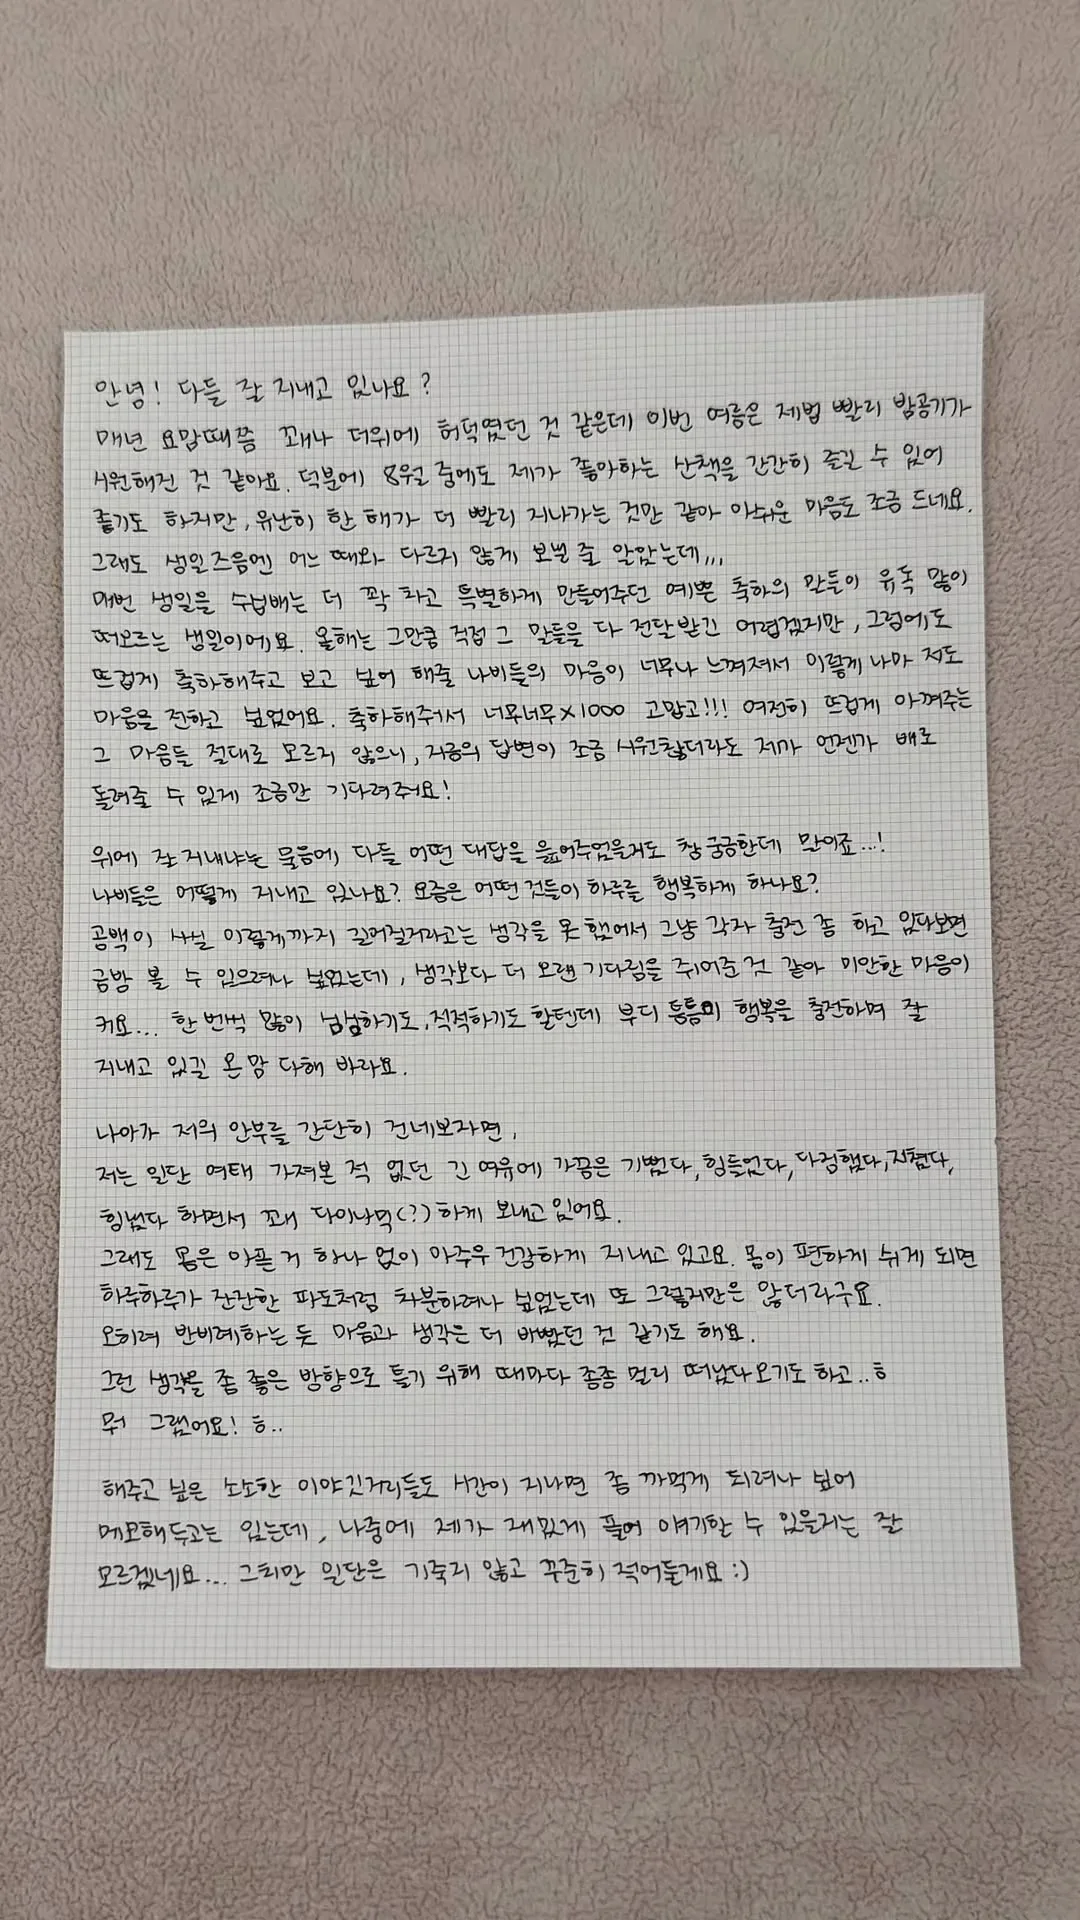 안녕! 다들 잘 지내고 있나요?
매년 요맘때쯤 꽤나 더위에 허덕였던 것 같은데 이번 여름은 제법 빨리 밤공기가
시원해진 것 같아요. 덕분에 8월 중에도 제가 좋아하는 산책을 간간히 즐길 수 있어
좋기도 하지만, 유난히 한 해가 더 빨리 지나가는 것만 같아 아쉬운 마음도 조금 드네요.
그래도 생일즈음엔 어느 때와 다르지 않게 보낼 줄 알았는데,,,
매번 생일을 수십배는 더 꽉 차고 특별하게 만들어주던 예쁜 축하의 말들이 유독 많이
떠오르는 생일이에요. 올해는 그만큼 직접 그 말들을 다 전달받긴 어렵겠지만, 그럼에도
뜨겁게 축하해주고 보고 싶어 해줄 나비들의 마음이 너무나 느껴져서 이렇게 나마 저도
마음을 전하고 싶었어요. 축하해주어서 너무너무×1000 고맙고!!! 여전히 뜨겁게 아껴주는
그 마음들 절대로 모르지 않으니, 지금의 답변이 조금 시원찮더라도 제가 언젠가 배로
돌려줄 수 있게 조금만 기다려줘요!
위에 잘 지내냐는 물음에 다들 어떤 대답을 읊어주었을지도 참 궁금한데 말이죠...!
나비들은 어떻게 지내고 있나요? 요즘은 어떤 것들이 하루를 행복하게 하나요?
공백이 사실 이렇게까지 길어질거라고는 생각을 못 했어서 그냥 각자 충전 좀 하고 있다보면
금방 볼 수 있으려나 싶었는데, 생각보다 더 오랜 기다림을 쥐어준 것 같아 미안한 마음이
커요... 한 번씩 많이 심심하기도, 적적하기도 할텐데 부디 틈틈이 행복을 충전하며 잘
지내고 있길 온 맘 다해 바라요.
나아가 저의 안부를 간단히 건네보자면,
저는 일단 여태 가져본 적 없던 긴 여유에 가끔은 기뻤다, 힘들었다, 다정했다, 지쳤다,
힘냈다 하면서 꽤 다이나믹(?)하게 보내고 있어요.
그래도 몸은 아픈 거 하나 없이 아주우 건강하게 지내고 있고요. 몸이 편하게 쉬게 되면
하루하루가 잔잔한 파도처럼 차분하려나 싶었는데 또 그렇지만은 않더라구요.
오히려 반비례하는 듯 마음과 생각은 더 바빴던 것 같기도 해요.
그런 생각을 좀 좋은 방향으로 틀기 위해 때마다 종종 멀리 떠났다 오기도 하고..ㅎ
뭐 그랬어요! ㅎ..
해주고 싶은 소소한 이야깃거리들도 시간이 지나면 좀 까먹게 되려나 싶어
메모해두고는 있는데, 나중에 제가 재밌게 풀어 얘기할 수 있을지는 잘
모르겠네요... 그치만 일단은 기죽지 않고 꾸준히 적어둘게요 :)